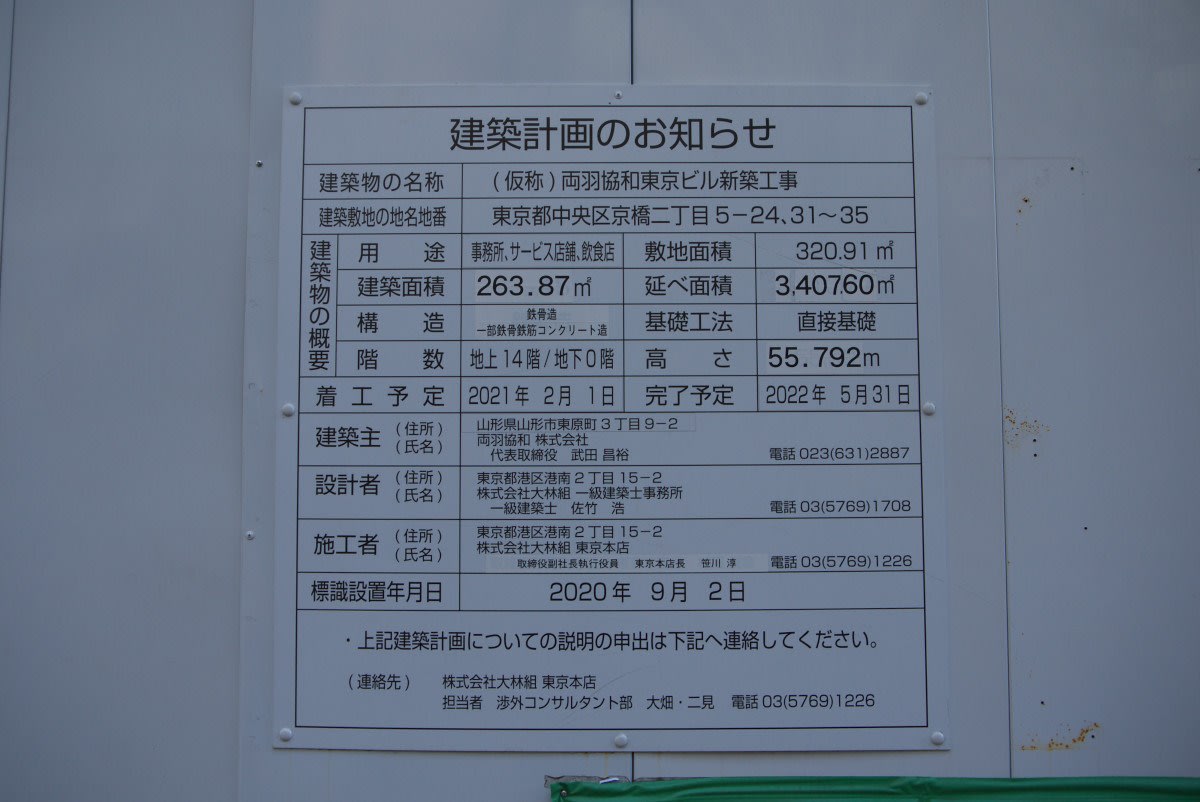 建築計画のお知らせ
建築物の名称 (仮称)両羽協和東京ビル新築工事
建築敷地の地名地番 東京都中央区京橋二丁目5－24、31～35
建築物の概要
用途 事務所、サービス店舗、飲食店 敷地面積 320.91㎡
建築面積 263.87㎡ 延べ面積 3,407.60㎡
構造 鉄骨造
一部鉄骨鉄筋コンクリート造 基礎工法 直接基礎
階数 地上14階/地下0階 高さ 55.792m
着工予定 2021年 2月 1日 完了予定 2022年 5月31日
建築主 (住所) 山形県山形市東原町3丁目9－2
(氏名) 両羽協和 株式会社
代表取締役 武田 昌裕 電話 023(631)2887
設計者 (住所) 東京都港区港南2丁目15－2
(氏名) 株式会社大林組 一級建築士事務所
一級建築士 佐竹 浩 電話 03(5769)1708
施工者 (住所) 東京都港区港南2丁目15－2
(氏名) 株式会社大林組 東京本店
取締役副社長執行役員 東京本店長 笹川 淳 電話 03(5769)1226
標識設置年月日 2020年 9月 2日
・上記建築計画についての説明の申出は下記へ連絡してください。
(連絡先) 株式会社大林組 東京本店
担当者 渉外コンサルタント部 大畑・二見 電話 03(5769)1226